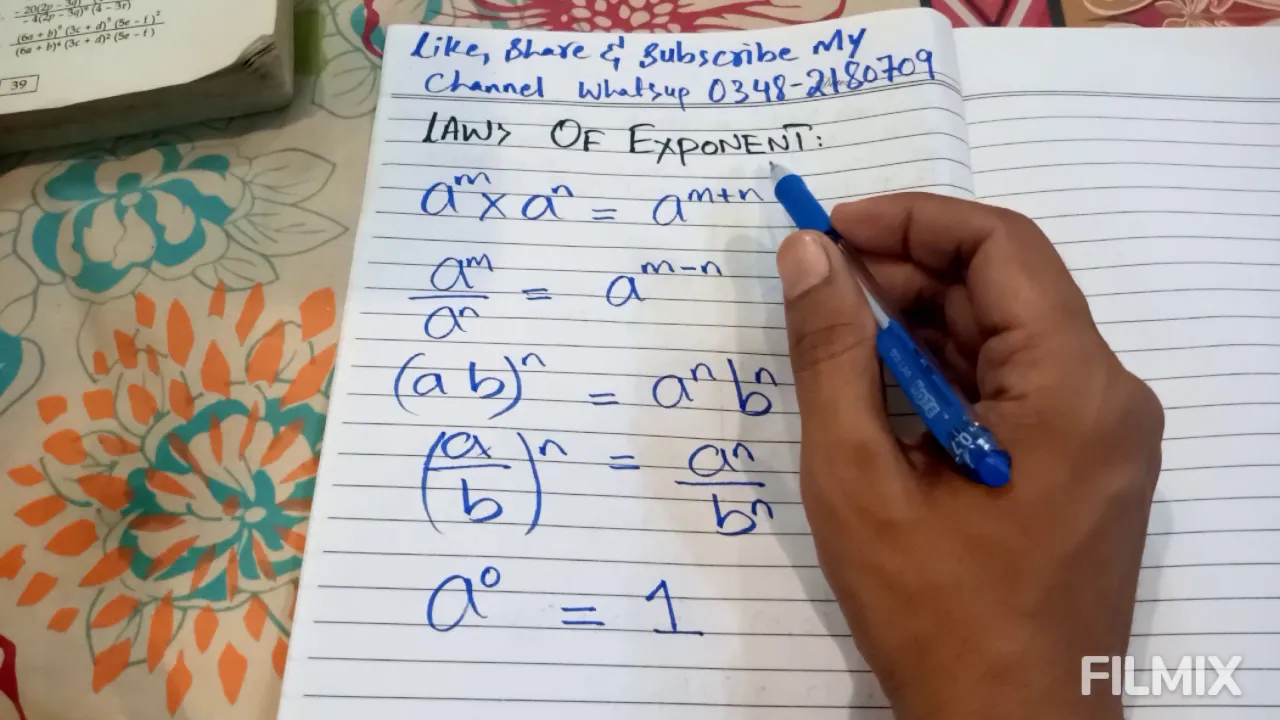 -20(2p - 3q)
4(2p - 3q)⁴ (4 - 3r)
(6a + b)⁵ (3c + d)³ (5e - f)²
(6a + b)⁴ (3c + d)² (5e - f)
39
Like, Share & Subscribe My
Channel Whatsup 0348-2180709
LAWS OF EXPONENT:
aᵐ × aⁿ = aᵐ⁺ⁿ
aᵐ/aⁿ = aᵐ⁻ⁿ
(a b)ⁿ = aⁿ bⁿ
(a/b)ⁿ = aⁿ/bⁿ
a⁰ = 1
FILMIX